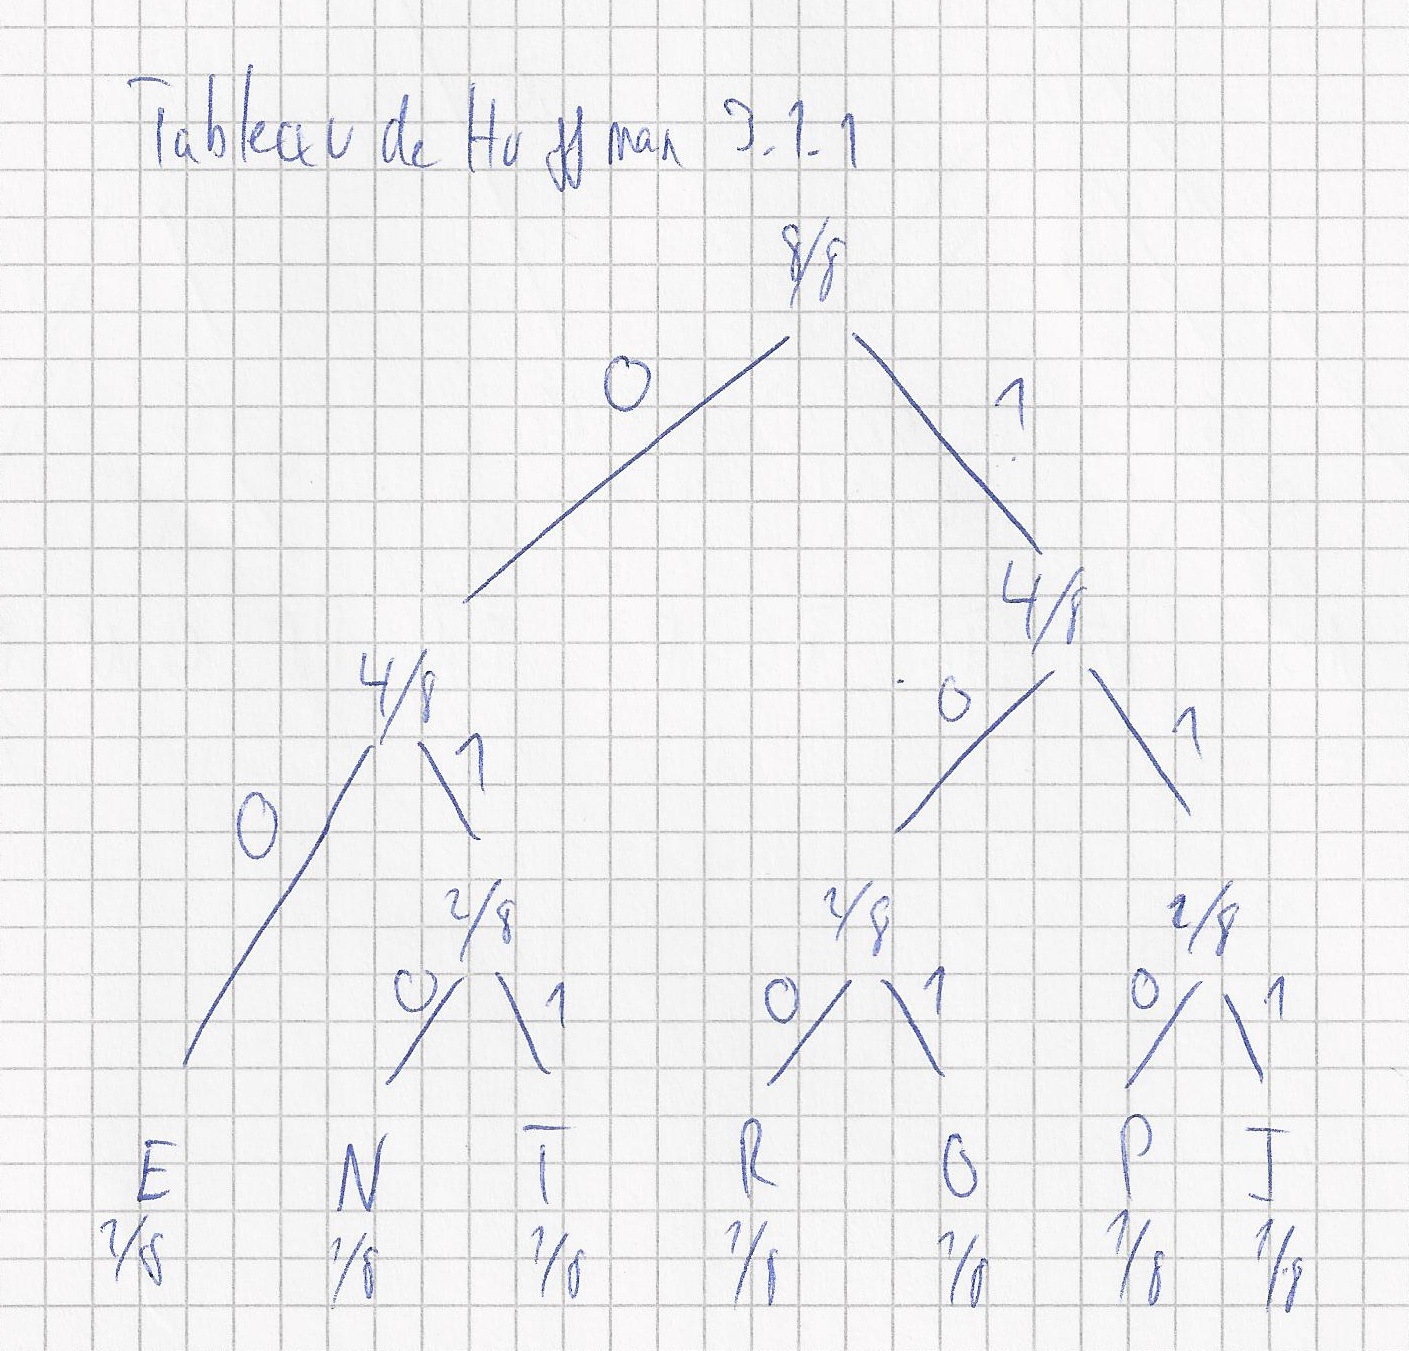 Tableau de Huffman 3.1.1
8/8
0 1
4/8
4/8
0 1
0 1
2/8 2/8 2/8
0 1 0 1 0 1
E N T R O P I
2/8 1/8 1/8 1/8 1/8 1/8 1/8